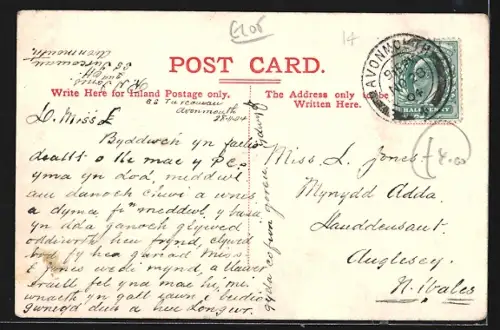 POST CARD.
Write Here for Inland Postage only.
The Address only to be
Written Here.
AVONMOUTH
HALFPENNY
Avonmouth
D. Miss L
Byddwch yn
deallt o lle mae y P.C.
yma yn dod, meddwl
am danoch chwi a wnes
a dyma fi'n meddwl y basa
yn dda ganoch glywed
oddiwrth hen frynd, clywed
fy hen gariad Miss
E Jones wedi mynd, a llawer
traill fel yna mae hi, mi
wnaeth yn gall iawn i beidio
a hen Longwr.
gyda cofion goreu
Miss L. Jones
Mynydd Adda
Llanddeusant
Anglesey.
N. Wales